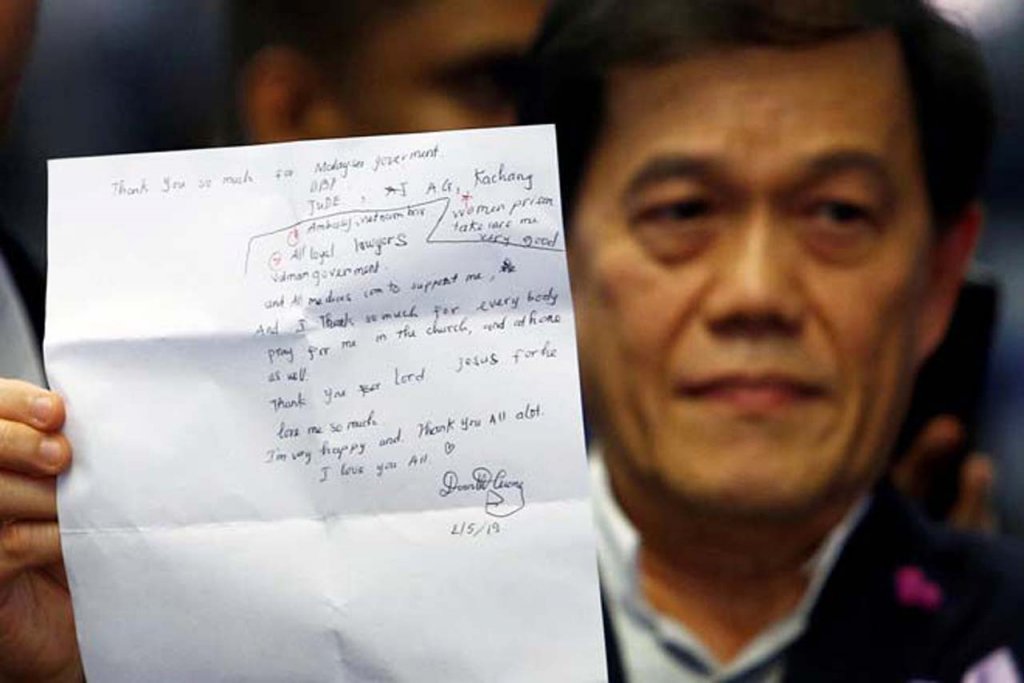 Thank You so much for Malaysia goverment.
JUDE, I AG, Kachang
women prison
take care me
very good
Ambassy, vietnam
All loyal lawyers
goverment.
and All medias com to support me,
And I Thank so much for every body
pray for me in the church, and at home
as well.
Thank you Lord Jesus for he
love me so much
I'm very happy and. Thank You All alot.
I love you All.
2/5/19